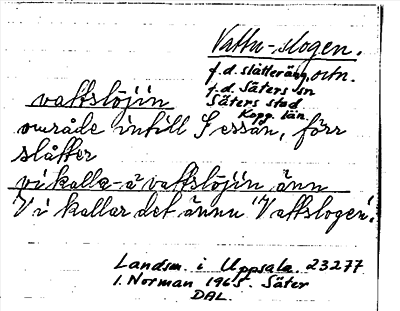 Vattu-slogen.
f.d. slätteräng, otn.
f.d. Säters sn
vattslöjin Säters stad
Kopp. län
område intill Ljessån, förr
slåtter
vi kalla-å vattslöjin änn
Vi kallar det ännu 'Vattslogen'.
Landsm. i Uppsala 23277
I. Norman 1965. Säter
DAL.